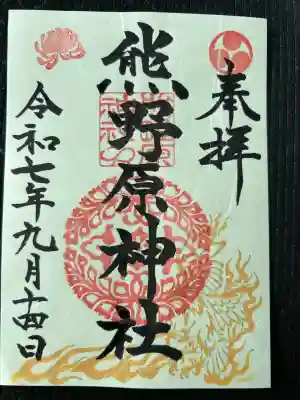 奉拝
熊野原神社
令和七年九月十四日